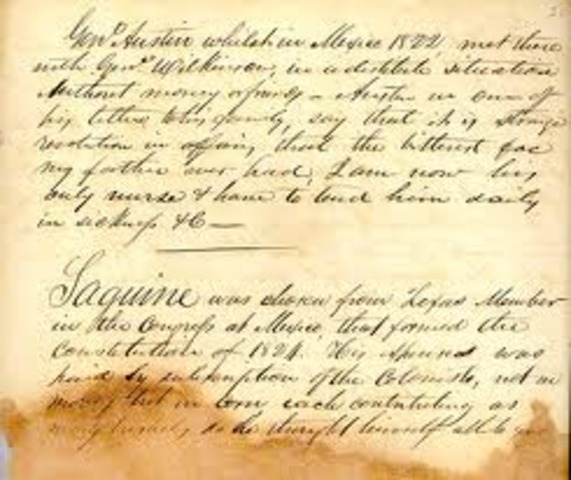 Genl Austin whilst in Mexico 1822, met there
with Genl Wilkinson, in a destitute situation
Without money or friends – Austin in one of
his letters to his family, say that it is strange
revolution in affairs, that the bitterest foe
my father ever had, I am now his
only nurse & have to tend him daily
in sickness &C —
Saquine was chosen from Texas Member
in the Congress at Mexico, that formed the
Constitution of 1824. His expenses was
paid by subscription of the Colonists, not in
money but in corn each contributing as
many as he thought himself able to